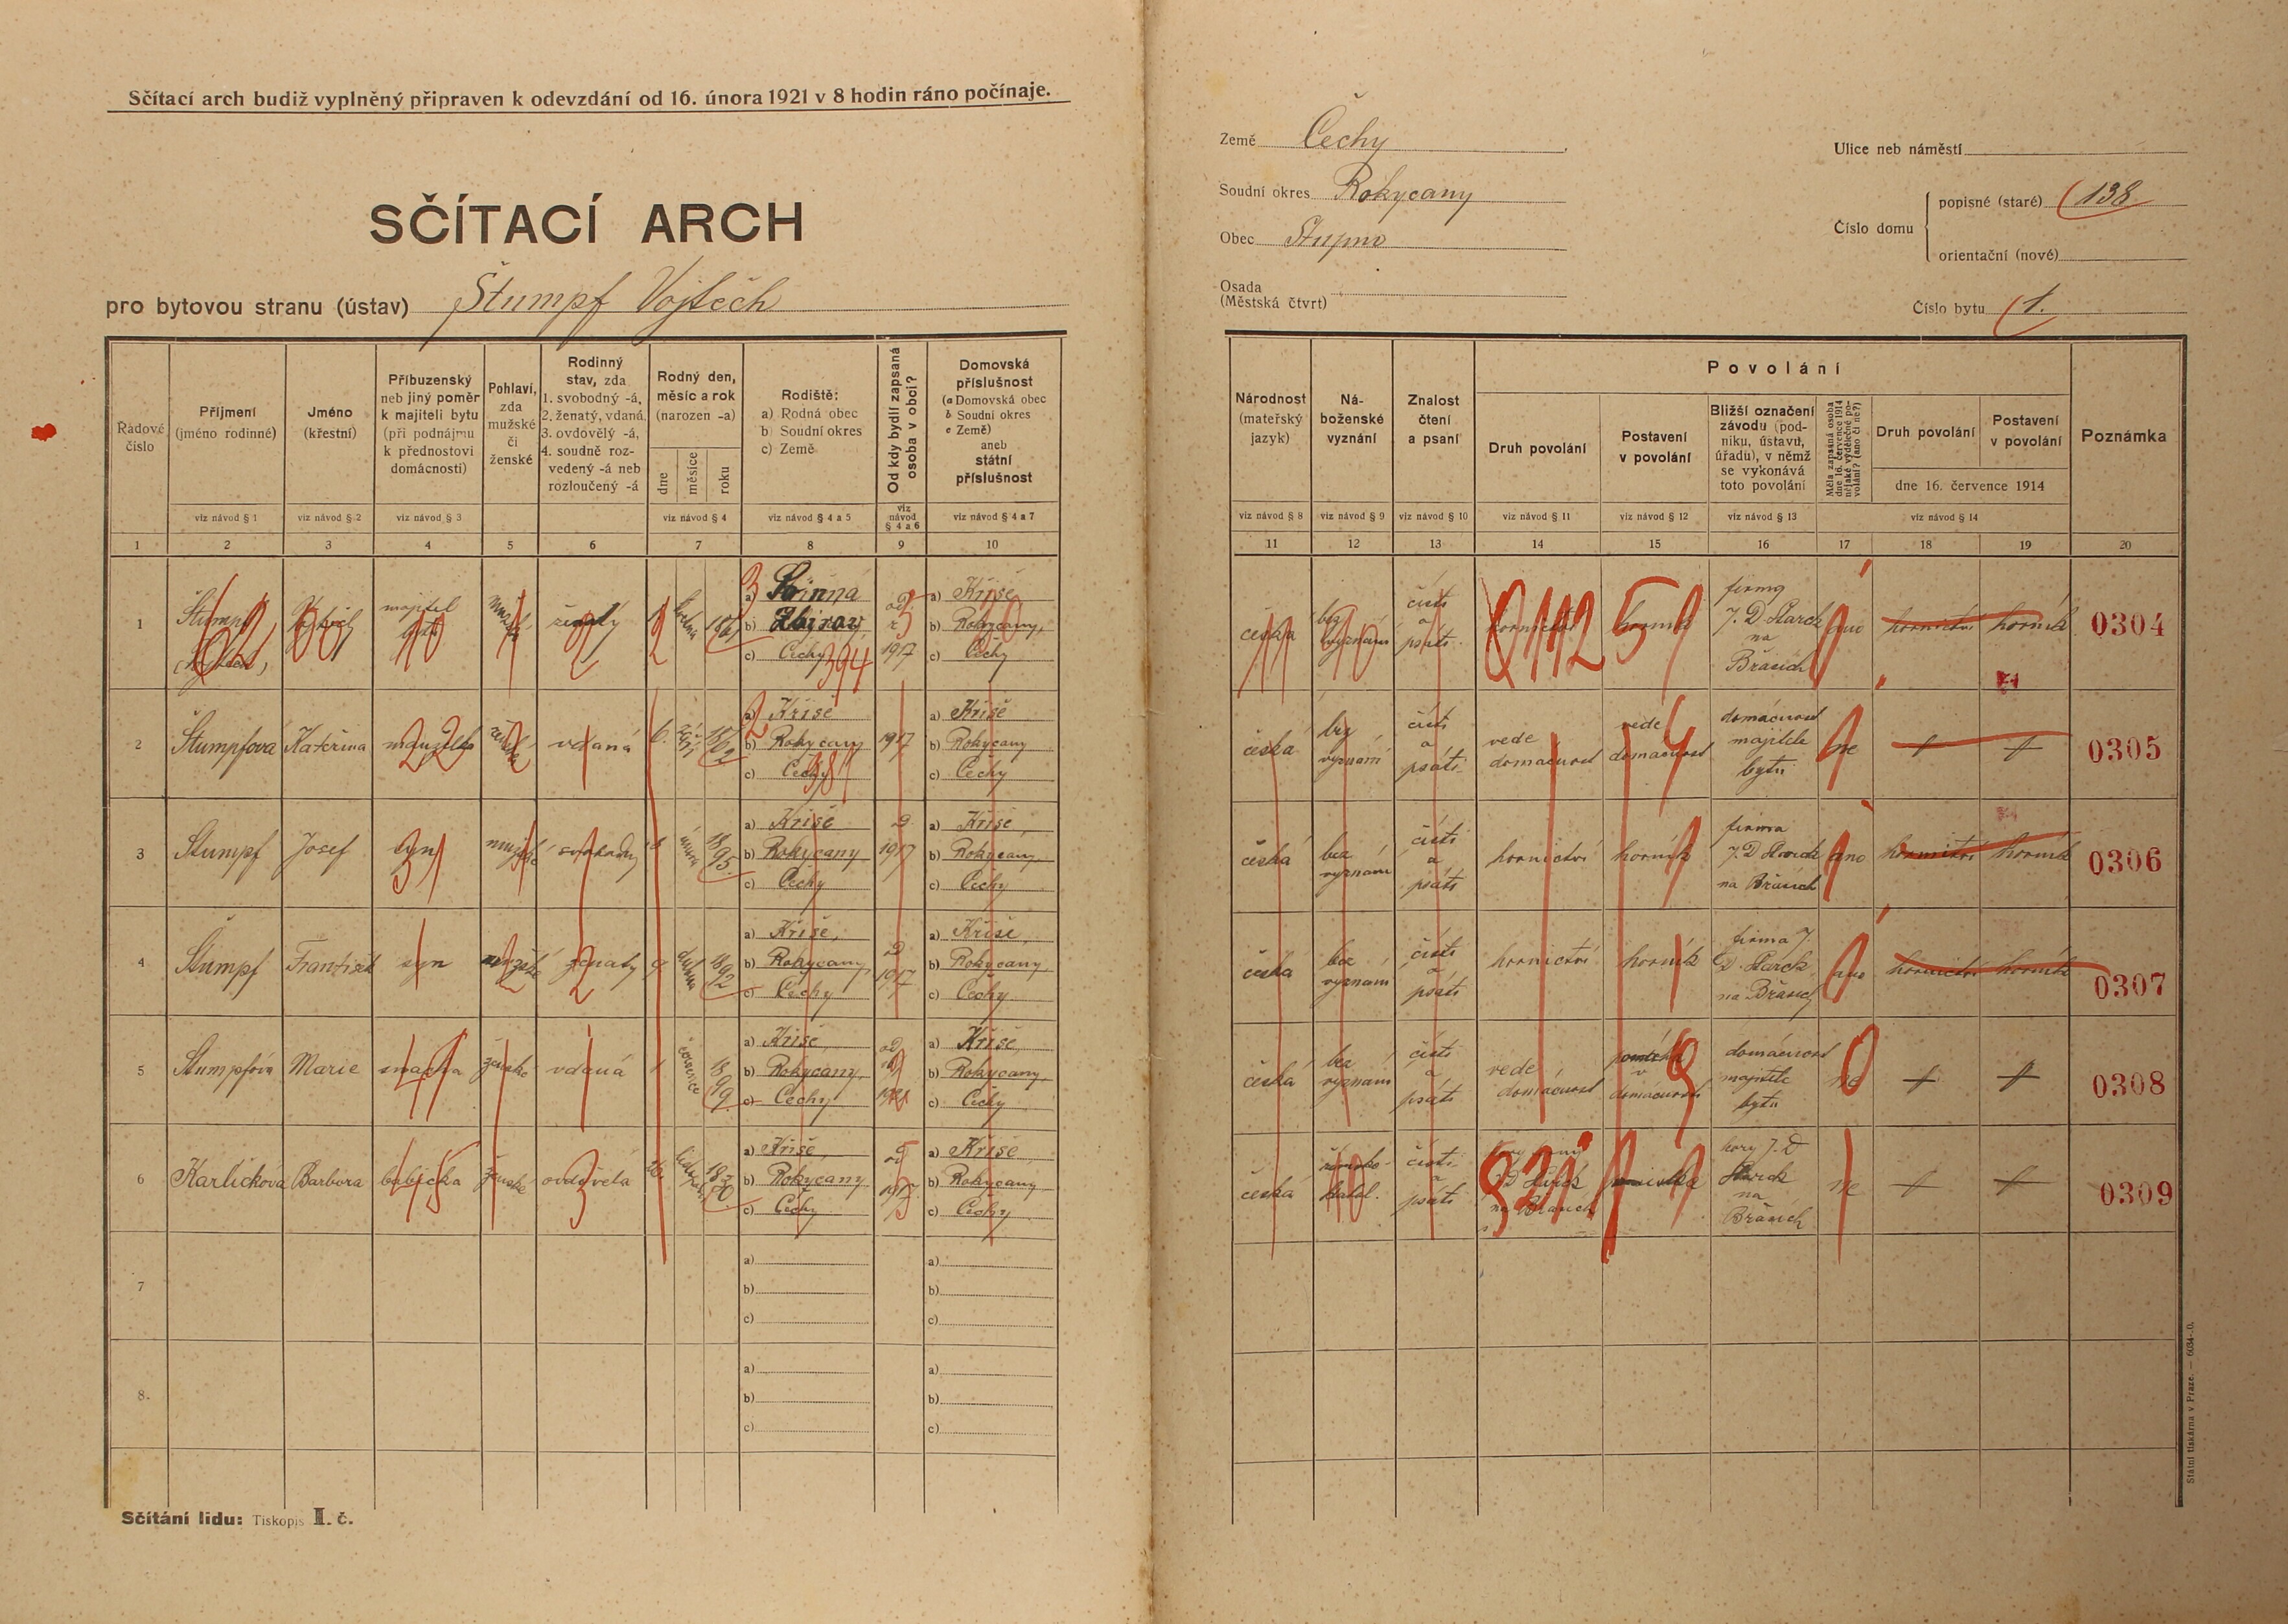 Sčítací arch budiž vyplněný připraven k odevzdání od 16. února 1921 v 8 hodin ráno počínaje.
SČÍTACÍ ARCH
pro bytovou stranu (ústav) Štumpf Vojtěch
Země Čechy
Soudní okres Rokycany
Obec Stupno
Osada
(Městská čtvrt)
Ulice neb náměstí
Číslo domu
popisné (staré) 138
orientační (nové)
Číslo bytu 1.
Řádové číslo
Příjmení (jméno rodinné)
viz návod § 1
Jméno (křestní)
viz návod § 2
Příbuzenský neb jiný poměr k majiteli bytu (při podnájmu k přednostovi domácnosti)
viz návod § 3
Pohlaví, zda mužské či ženské
Rodinný stav, zda
1. svobodný -á,
2. ženatý, vdaná,
3. ovdovělý -á,
4. soudně rozvedený -á neb rozloučený -á
Rodný den, měsíc a rok (narozen -a)
dne
měsíce
roku
viz návod § 4
Rodiště:
a) Rodná obec
b) Soudní okres
c) Země
viz návod § 4 a 5
Od kdy bydlí zapsaná osoba v obci?
viz návod § 4 a 6
Domovská příslušnost
(a Domovská obec
b Soudní okres
c Země)
aneb
státní příslušnost
viz návod § 4 a 7
Národnost (mateřský jazyk)
viz návod § 8
Náboženské vyznání
viz návod § 9
Znalost čtení a psaní
viz návod § 10
Povolání
Druh povolání
viz návod § 11
Postavení v povolání
viz návod § 12
Bližší označení závodu (podniku, ústavu, úřadu), v němž se vykonává toto povolání
viz návod § 13
Měla zapsaná osoba dne 16. července 1914 nějaké výdělečné povolání? (ano či ne?)
Druh povolání
Postavení v povolání
dne 16. července 1914
viz návod § 14
Poznámka
1 2 3 4 5 6 7 8 9 10 11 12 13 14 15 16 17 18 19 20
1 Štumpf majitel bytu ženatý
a) b) Zbirov c) Čechy
od 1917
a) Kříše b) Rokycany, c) Čechy
česká bez vyznání čísti a psáti hornictví horník firma J. D. Starck na Břasích ano hornictví horník 0304
2 Štumpfová Kateřina manželka ženské vdaná 6. září
a) Kříše b) Rokycany c) Čechy
1917
a) Kříše b) Rokycany c) Čechy
česká bez vyznání čísti a psáti vede domácnost vede domácnost domácnost majitele bytu ne 0305
3 Štumpf Josef syn mužské svobodný února 1895
a) Kříše b) Rokycany c) Čechy
1917
a) Kříše, b) Rokycany c) Čechy
česká bez vyznání čísti a psáti hornictví horník firma J. D. Starck na Břasích ano hornictví horník 0306
4 Štumpf František syn mužské ženatý 9 dubna 1892
a) Kříše, b) Rokycany, c) Čechy
1917
a) Kříše b) Rokycany, c) Čechy
česká bez vyznání čísti a psáti hornictví horník firma J. D. Starck na Břasích ano hornictví horník 0307
5 Štumpfová Marie snacha ženské vdaná července 1899
a) Kříše, b) Rokycany, c) Čechy
od
a) Kříše, b) Rokycany, c) Čechy
česká bez vyznání čísti a psáti vede domácnost v domácnosti domácnost majitele bytu ne 0308
6 Karlíčková Barbora babička ženské ovdovělá
a) Kříše, b) Rokycany c) Čechy
od 1917
a) Kříše b) Rokycany c) Čechy
česká římsko-katol. čísti a psáti hory J. D Starck na Břasích ne 0309
7 a) b) c) a) b) c)
8. a) b) c) a) b) c)
Sčítání lidu: Tiskopis I. č.
Státní tiskárna v Praze. — 6034-.0.